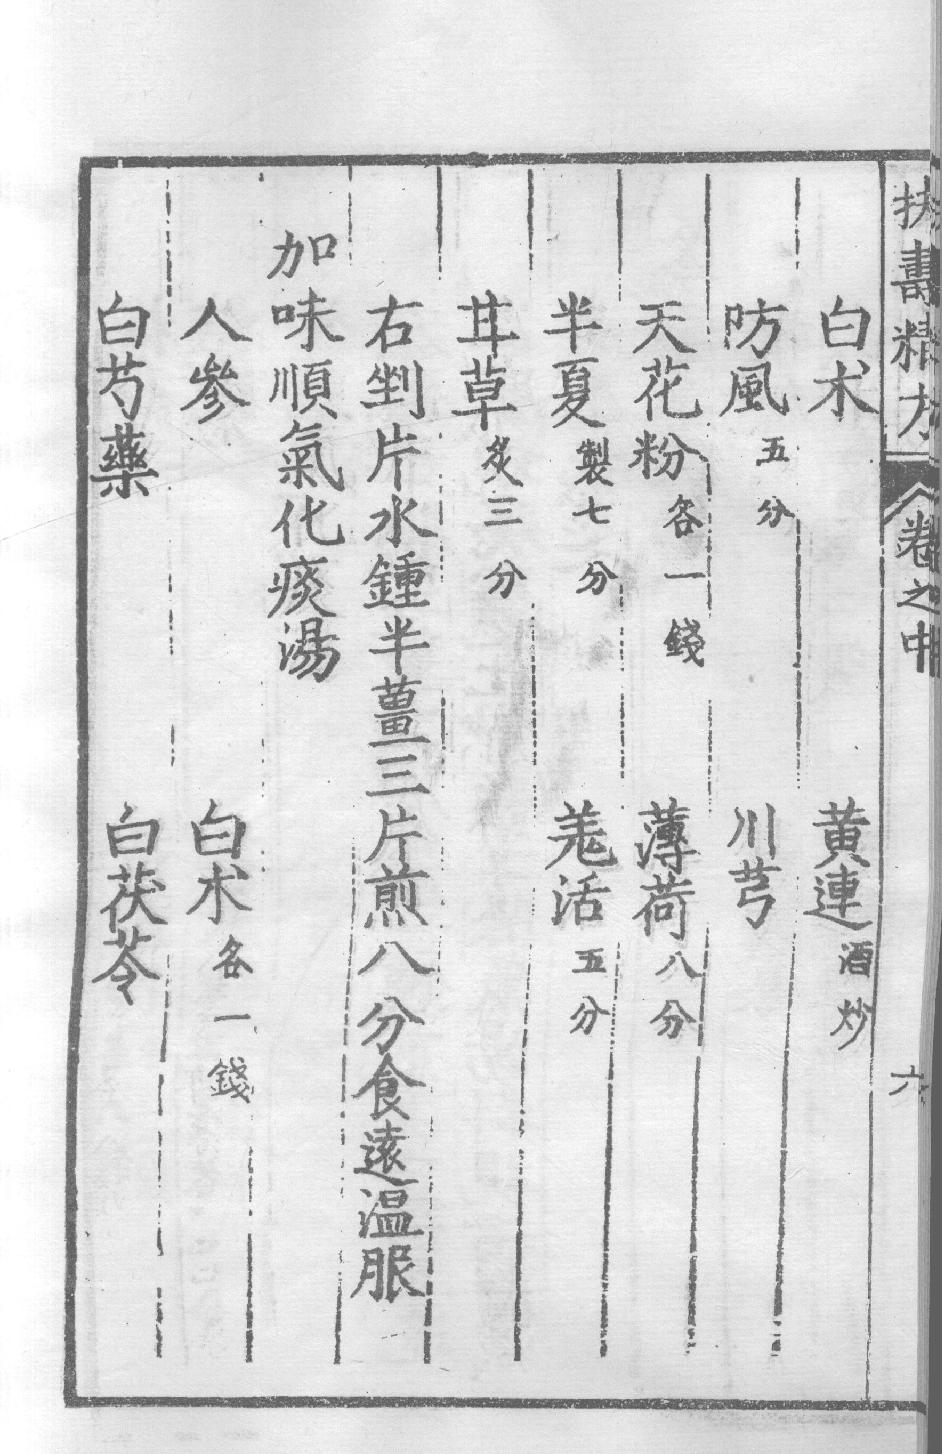 扶壽精方 卷之中 六
白术 黄連酒炒
防風五分 川芎
天花粉各一錢 薄荷八分
半夏製七分 羌活五分
甘草炙三分
右剉片水鍾半薑三片煎八分食遠温服
加味順氣化痰湯
人參 白术各一錢
白芍藥 白茯苓